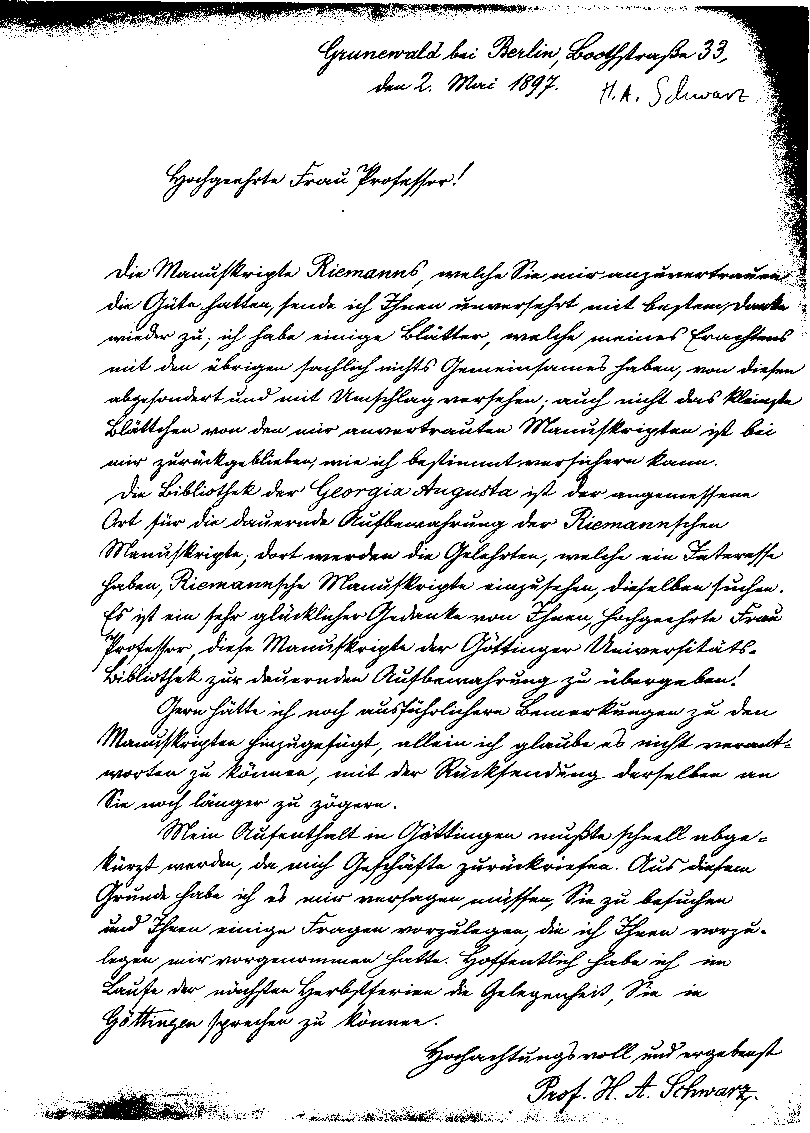 Grunewald bei Berlin, Boothstraße 33,
den 2. Mai 1897.
H. A. Schwarz
Hochgeehrte Frau Professor!
Die Manuskripte Riemanns, welche Sie mir anzuvertrauen
die Güte hatten, sende ich Ihnen unversehrt mit bestem Danke
wieder zu; ich habe einige Blätter, welche meines Erachtens
mit den übrigen sachlich nichts Gemeinsames haben, von diesen
abgesondert und mit Umschlag versehen; auch nicht das kleinste
Blättchen von den mir anvertrauten Manuskripten ist bei
mir zurückgeblieben, wie ich bestimmt versichern kann.
Die Bibliothek der Georgia Augusta ist der angemessene
Ort für die dauernde Aufbewahrung der Riemannschen
Manuskripte; dort werden die Gelehrten, welche ein Interesse
haben, Riemannsche Manuskripte einzusehen, dieselben suchen.
Es ist ein sehr glücklicher Gedanke von Ihnen, hochgeehrte Frau
Professor, diese Manuskripte der Göttinger Universitäts-
Bibliothek zur dauernden Aufbewahrung zu übergeben!
Gern hätte ich noch ausführlichere Bemerkungen zu den
Manuskripten hinzugefügt, allein ich glaube es nicht verant-
worten zu können, mit der Rücksendung derselben an
Sie noch länger zu zögern.
Mein Aufenthalt in Göttingen mußte schnell abge-
kürzt werden, da mich Geschäfte zurückriefen. Aus diesem
Grunde habe ich es mir versagen müssen, Sie zu besuchen
und Ihnen einige Fragen vorzulegen, die ich Ihnen vorzu-
legen mir vorgenommen hatte. Hoffentlich habe ich im
Laufe der nächsten Herbstferien die Gelegenheit, Sie in
Göttingen sprechen zu können.
Hochachtungsvoll und ergebenst
Prof. H. A. Schwarz.